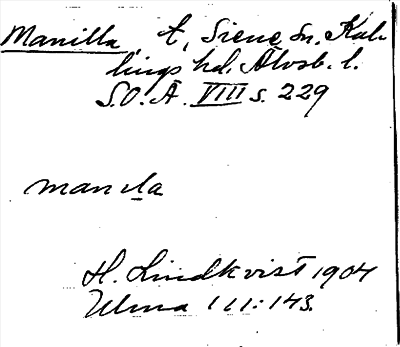 Manilla, t, Siene sn. Kul-
lings hd. Älvsb. l.
S.O.Ä. VIII s. 229
manıla
H. Lindkvist 1904
Ulma 111:143.